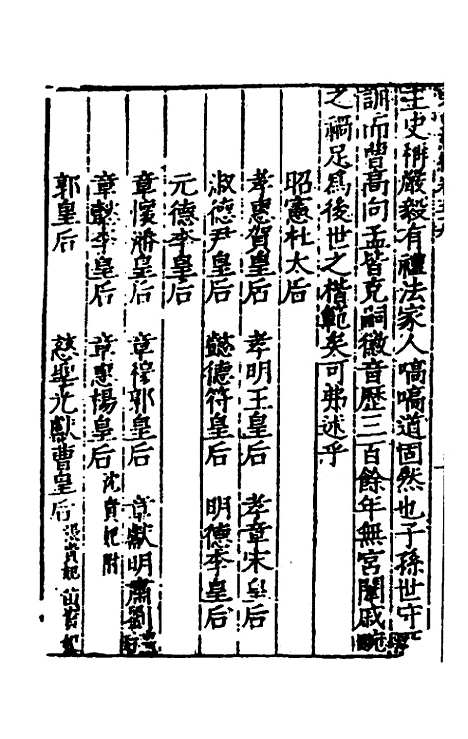 王史稱嚴毅有禮法家人嗃嗃道固然也子孫世守
訓而曹高向孟皆克嗣徽音歷三百餘年無宮闈戚畹
之禍足爲後世之楷範矣可弗述乎
昭憲杜太后
孝惠賀皇后 孝明王皇后 孝章宋皇后
淑德尹皇后 懿德符皇后 明德李皇后
元德李皇后
章懷潘皇后 章穆郭皇后 章獻明肅劉
章懿李皇后 章惠楊皇后 沈貴妃附
郭皇后 慈聖光獻曹皇后 張貴妃 苗貴妃